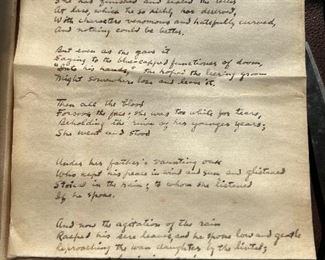 She has finished and sealed the letter
At last, which he so richly has deserved,
With characters venomous and hatefully curved,
And nothing could be better.
But even as she gave it
Saying to the blue-capped functioner of doom,
"Into his hands," she hoped the leering groom
Might somewhere lose and leave it.
Then all the blood
Forsook the face; she was too white for tears,
Beholding the ruin of her younger years;
She went and stood
Under her father's vaunting oak
Who kept his peace in wind and sun and glistened
Stoical in the rain; to whom she listened
If he spoke.
And now the agitation of the rain
Rasped his sere leaves and he spoke low and gentle
Reproaching the wan daughter by the lintel;